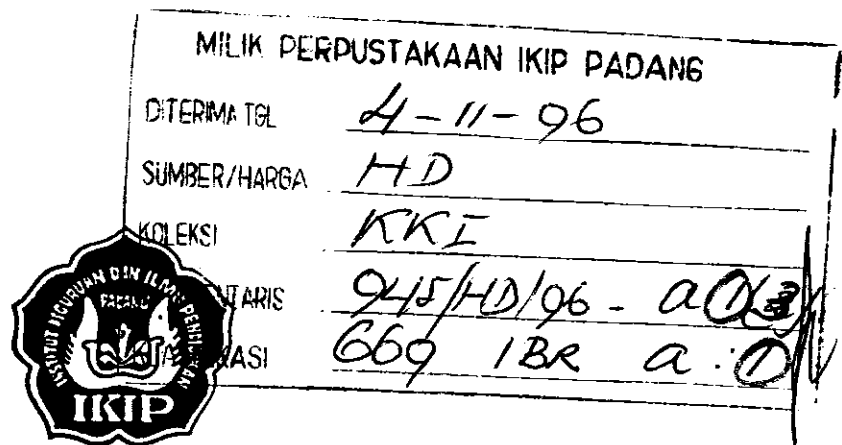 MILIK PERPUSTAKAAN IKIP PADANG
DITERIMA TGL 4-11-96
SUMBER/HARGA HD
KOLEKSI KKI
NTARIS 945/HD/96 - a
ASI 669 IBR a : 1
INSTITUT KEGURUAN DAN ILMU PENDIDIKAN
PADANG
IKIP